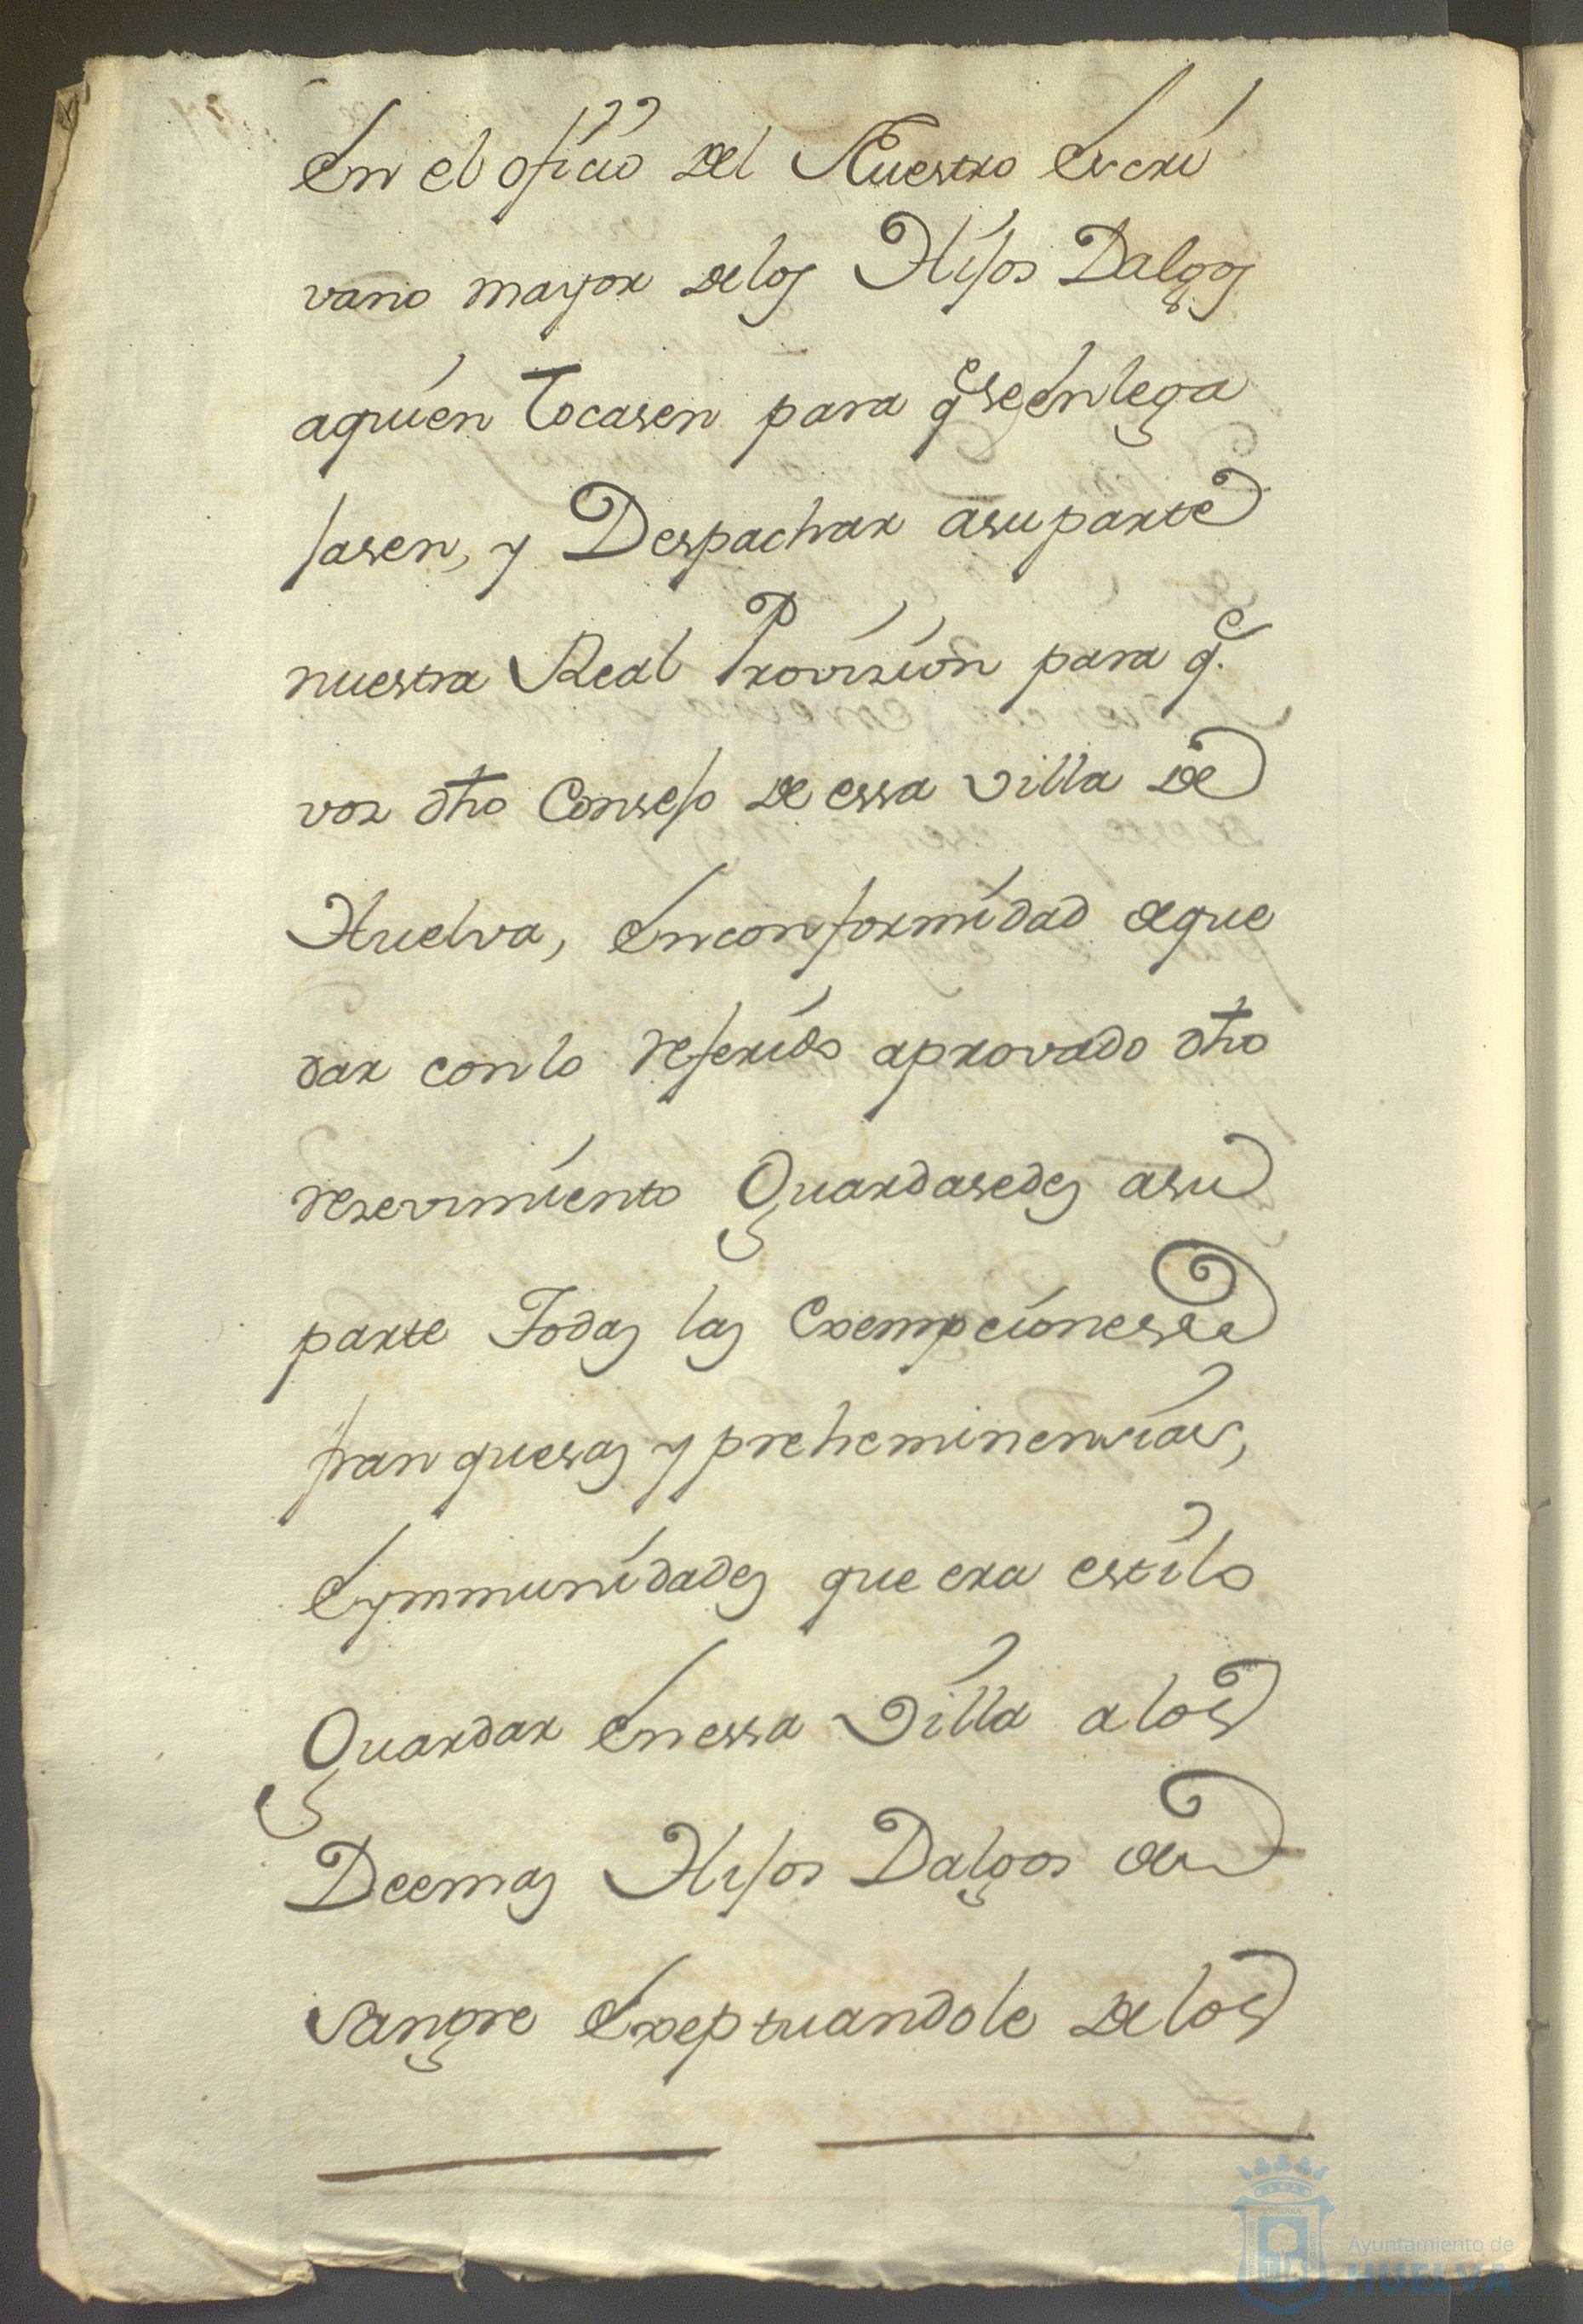 En el oficio del Nuestro Escri
vano mayor de los Hijos Dalgos
aquien tocasen para q.e se enlega
jasen, y Despachar asuparte
nuestra Real Provision para q.e
vos dho Consejo de essa villa de
Huelva, en conformidad deque
dar con lo referido aprovado dho
resevimiento Guardasedes asu
parte Todas las Exempciones
franquesas y preheminensias,
Eymmunidades que era estilo
Guardar En essa Villa a los
Deemas Hijos Dalgos de
Sangre Exeptuandole de los
Ayuntamiento de
HUELVA